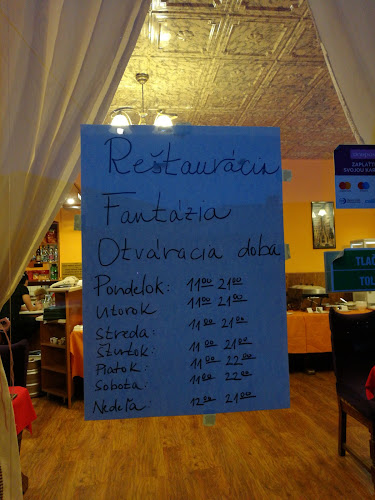 Reštaurácia
Fantázia
Otváracia doba
Pondelok: 11⁰⁰ 21⁰⁰
Utorok 11⁰⁰ 21⁰⁰
Streda: 11⁰⁰ 21⁰⁰
Štvrtok: 11⁰⁰ 21⁰⁰
Piatok: 11⁰⁰ 22⁰⁰
Sobota: 11⁰⁰ 22⁰⁰
Nedeľa: 12⁰⁰ 21⁰⁰
ZAPLAŤTE
SVOJOU KAR
TLAČ